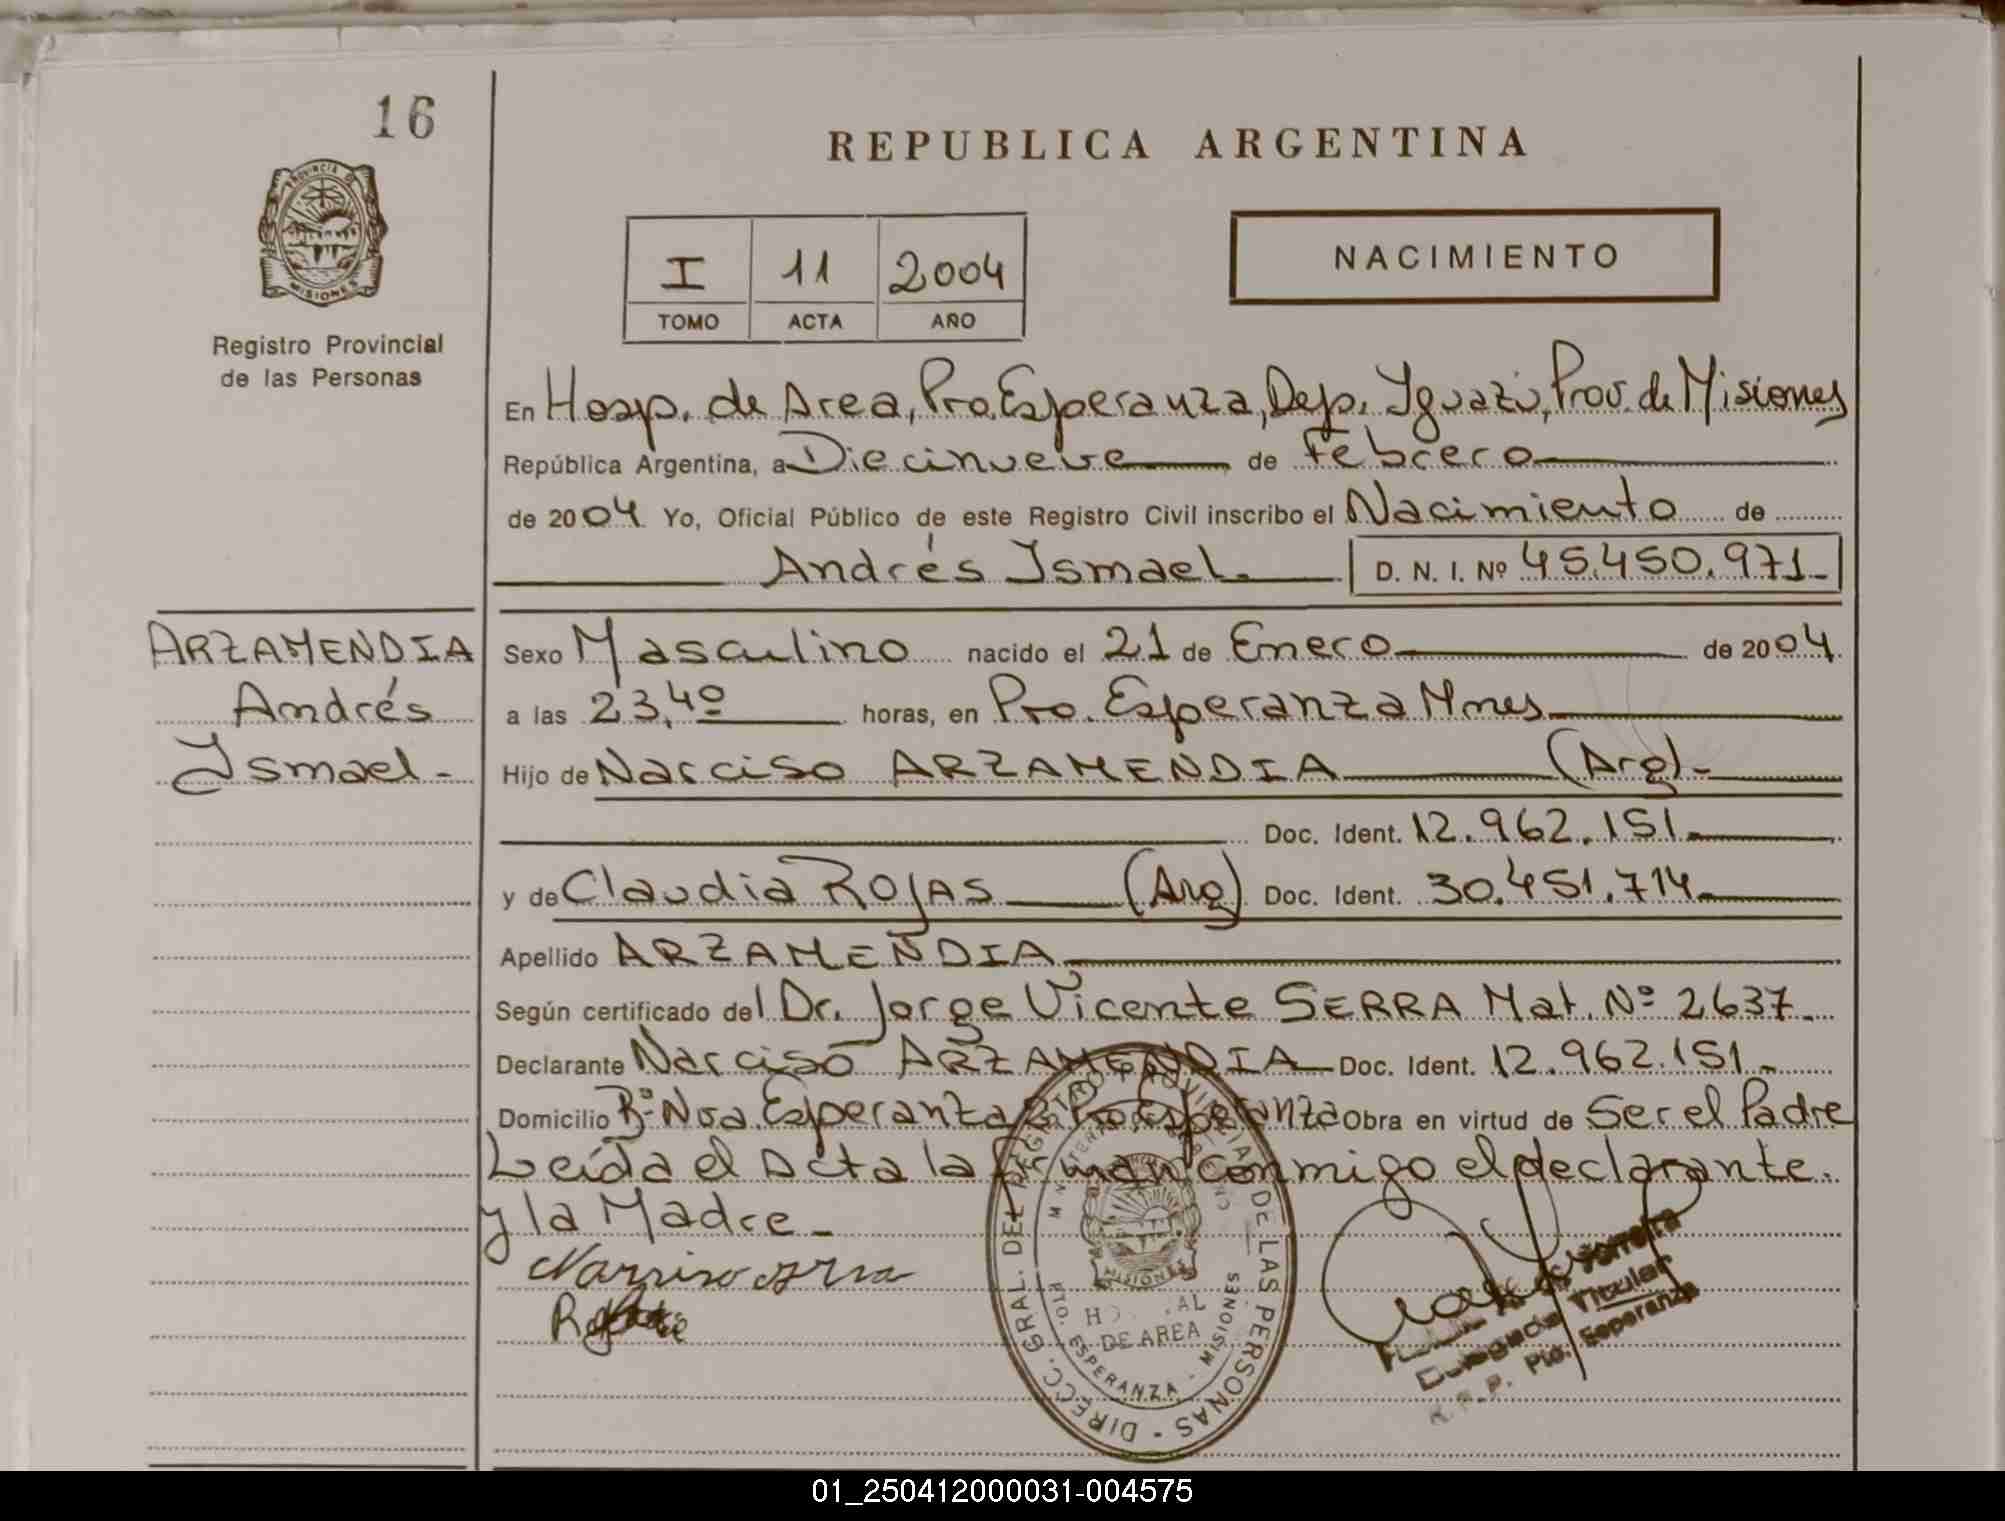 16
PROVINCIA DE
MISIONES
Registro Provincial
de las Personas
REPUBLICA ARGENTINA
I 11 2004
TOMO ACTA AÑO
NACIMIENTO
En Hosp. de Area, Pto. Esperanza, Dep. Iguazú, Prov. de Misiones
República Argentina, a Diecinueve de Febrero
de 2004 Yo, Oficial Público de este Registro Civil inscribo el Nacimiento de
Andrés Ismael. D. N. I. Nº 45.450.971-
ARZAMENDIA
Andrés
Ismael-
Sexo Masculino nacido el 21 de Enero de 2004
a las 23,40 horas, en Pto. Esperanza Mnes
Hijo de Narciso ARZAMENDIA (Arg)-
Doc. Ident. 12.962.151
y de Claudia ROJAS (Arg) Doc. Ident. 30.451.714
Apellido ARZAMENDIA
Según certificado del Dr. Jorge Vicente SERRA Mat. Nº 2637-
Declarante Narciso ARZAMENDIA Doc. Ident. 12.962.151-
Domicilio Bº Nva. Esperanza Pto Esperanza Obra en virtud de Ser el Padre
Leída el Acta la firman conmigo el declarante.
y la Madre-
Narciso Arza
DIRECC. GRAL. DEL REGISTRO PROVINCIAL DE LAS PERSONAS
MISIONES
DE AREA
PTO. ESPERANZA - MISIONES
Ferreira
Delegada Titular
R.P.P. Pto. Esperanza
01_250412000031-004575